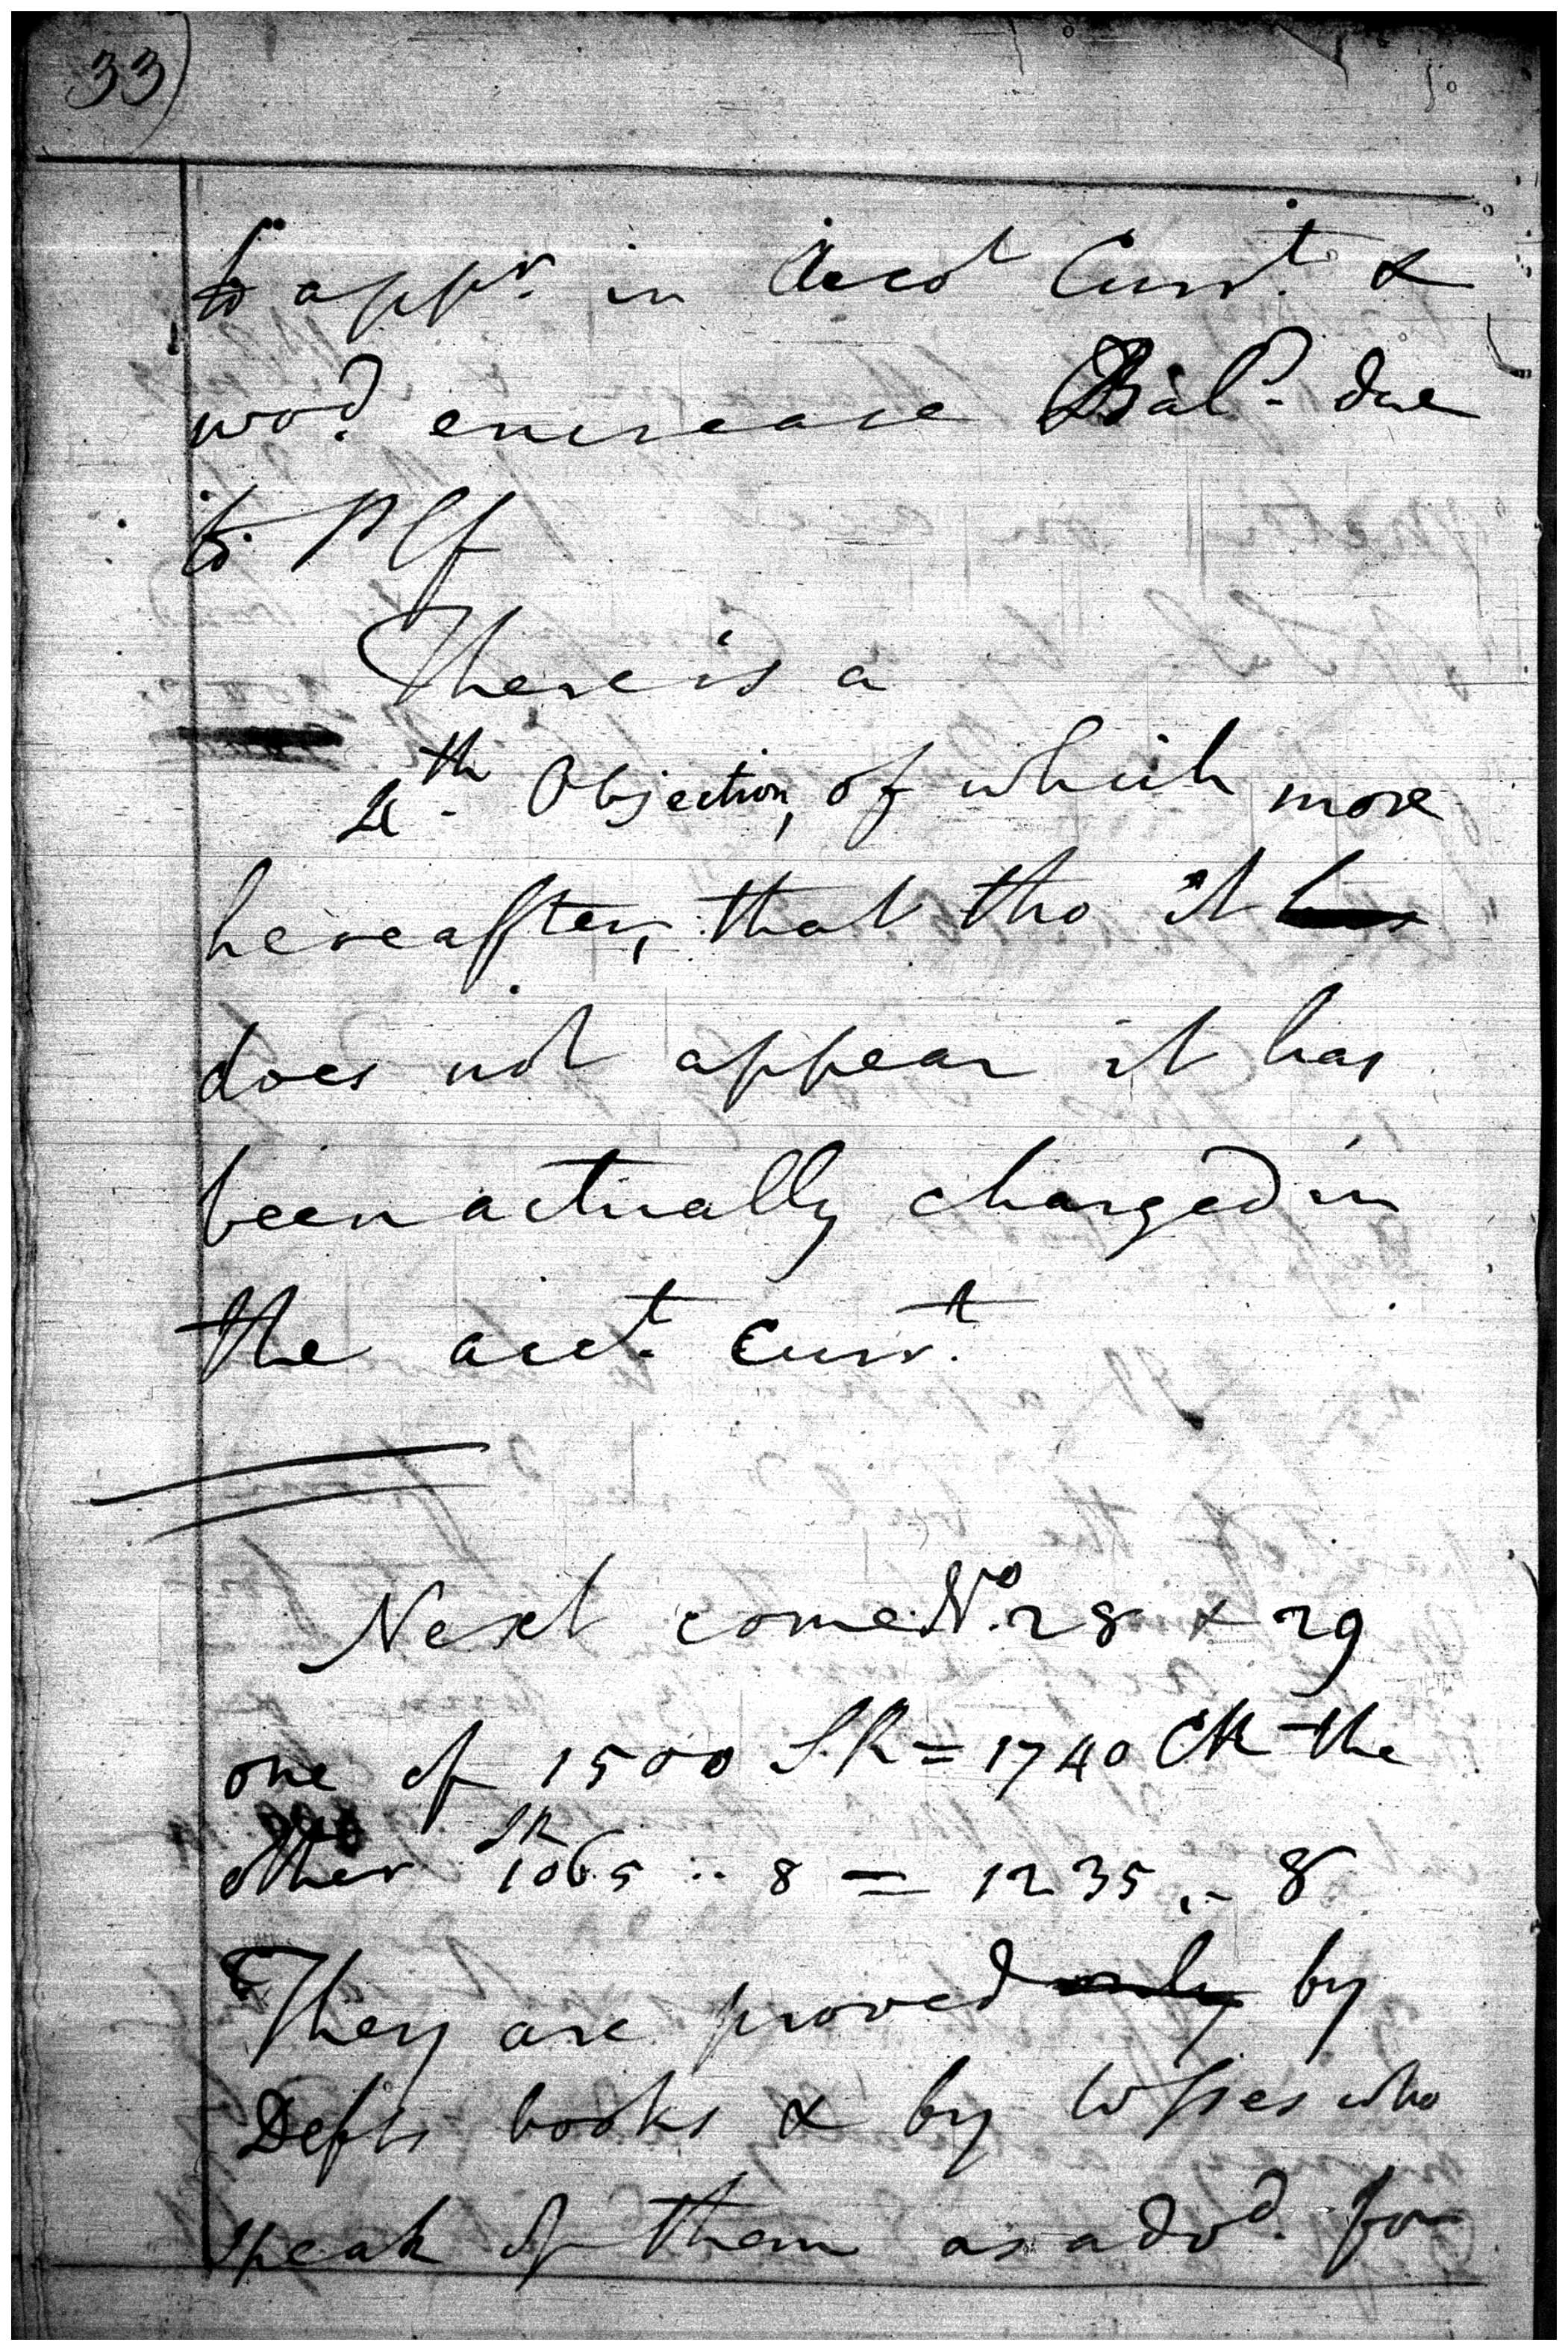 33)
to appr. in Acct Currt. &
wod. encrease Bal. due
to Plf
There is a
4th. Objection, of which more
hereafter, that tho it has
does not appear it has
been actually charged in
the acct. Currt.
Next come No. 28 & 29
one of 1500 S.R = 1740 CR the
other SR 1065 .. 8 = 1235 .. 8
They are proved only by
Defts books & by Wsses who
speak of them as advd. for